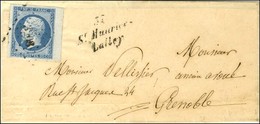 37
St Maurice-
Lalley
Monsieur
Monsieur Pellissier ancien avoué
Rue St Jacques 44
Grenoble